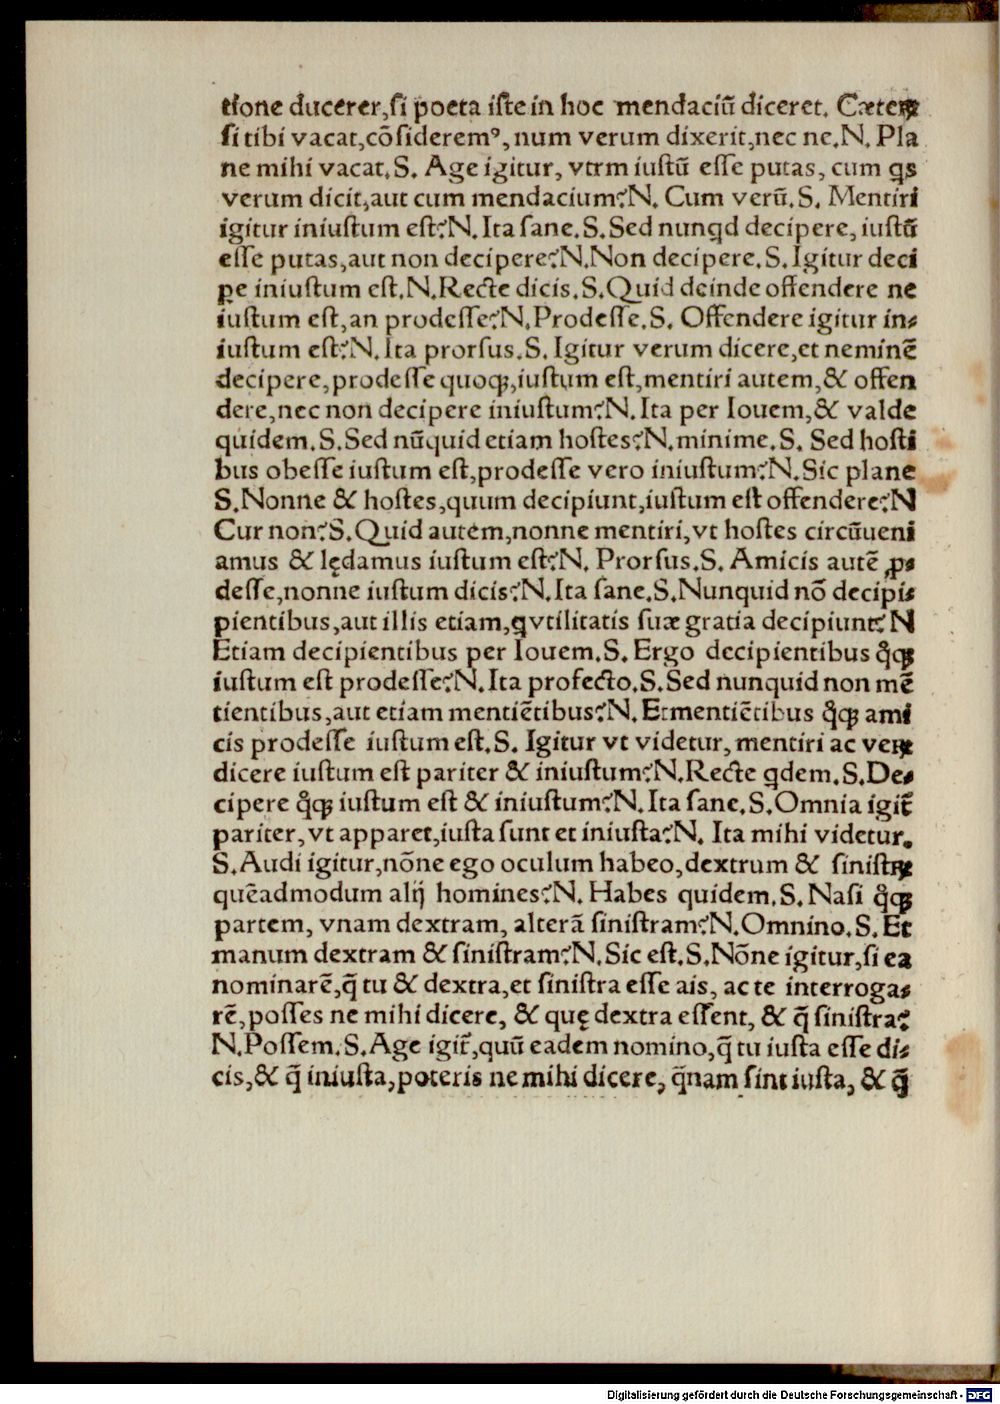 tione ducerer,ſi poeta iſte in hoc mendaciū diceret. Cæteꝝ
ſi tibi vacat,cōſideremꝰ, num verum dixerit,nec ne.N. Pla
ne mihi vacat.S. Age igitur, vtrm iuſtū eſſe putas, cum qs
verum dicit,aut cum mendacium?N. Cum verū.S. Mentiri
igitur iniuſtum eſt?N.Ita ſane.S.Sed nunqd decipere, iuſtū
eſſe putas,aut non decipere?N.Non decipere.S.Igitur deci
pe iniuſtum eſt.N.Recte dicis.S.Quid deinde offendere ne
iuſtum eſt,an prodeſſe?N.Prodeſſe.S. Offendere igitur in⸗
iuſtum eſt?N.Ita prorſus.S. Igitur verum dicere,et neminē
decipere,prodeſſe quoqꝫ,iuſtum eſt,mentiri autem,& offen
dere,nec non decipere iniuſtum?N.Ita per Iouem,& valde
quidem.S.Sed nūquid etiam hoſtes?N.minime.S. Sed hoſti
bus obeſſe iuſtum eſt,prodeſſe vero iniuſtum?N.Sic plane
S.Nonne & hoſtes,quum decipiunt,iuſtum eſt offendere?N
Cur non?S.Quid autem,nonne mentiri,vt hoſtes circūueni
amus & lędamus iuſtum eſt?N. Prorſus.S. Amicis autē ꝓ⸗
deſſe,nonne iuſtum dicis?N.Ita ſane.S.Nunquid nō decipi⸗
pientibus,aut illis etiam,qvtilitatis ſuæ gratia decipiunt?N
Etiam decipientibus per Iouem.S. Ergo decipientibus qͦqꝫ
iuſtum eſt prodeſſe?N.Ita profecto.S.Sed nunquid non mē
tientibus,aut etiam mentiētibus?N. Etmentiētibus qͦqꝫ ami
cis prodeſſe iuſtum eſt.S. Igitur vt videtur, mentiri ac veꝝ
dicere iuſtum eſt pariter & iniuſtum?N.Recte qdem.S.De⸗
cipere qͦqꝫ iuſtum eſt & iniuſtum?N.Ita ſane.S.Omnia igit᷑
pariter,vt apparet,iuſta ſunt et iniuſta?N. Ita mihi videtur.
S.Audi igitur,nōne ego oculum habeo,dextrum & ſiniſtꝝ
quēadmodum alij homines?N. Habes quidem.S. Naſi qͦqꝫ
partem, vnam dextram, alterā ſiniſtram?N.Omnino.S.Et
manum dextram & ſiniſtram?N.Sic eſt.S.Nōne igitur,ſi ea
nominarē,q̄ tu & dextra,et ſiniſtra eſſe ais, ac te interroga⸗
rē,poſſes ne mihi dicere, & quę dextra eſſent, & q̄ ſiniſtra?
N.Poſſem.S.Age igit᷑,quū eadem nomino,q̄ tu iuſta eſſe di⸗
cis,& q̄ iniuſta,poteris ne mihi dicere, q̄nam ſint iuſta, & q̄
Digitalisierung gefördert durch die Deutsche Forschungsgemeinschaft - DFG